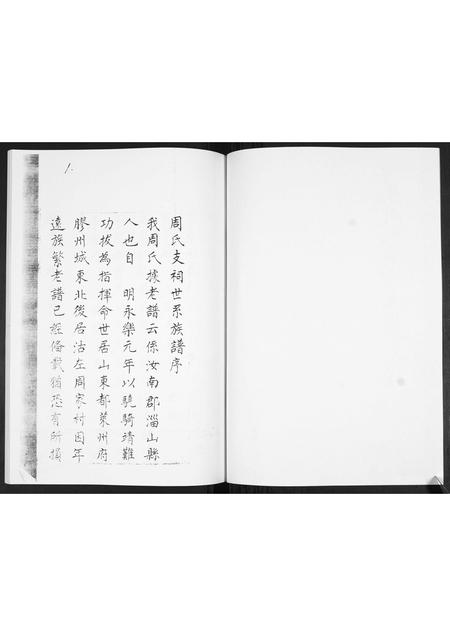 周氏支祠世系族譜序
我周氏據老譜云係汝南郡淄山縣
人也自　明永樂元年以驍騎靖難
功拔為指揮命世居山東都萊州府
膠州城東北後居沽左周家村因年
遠族繁老譜已經俻載猶恐有所損
1.